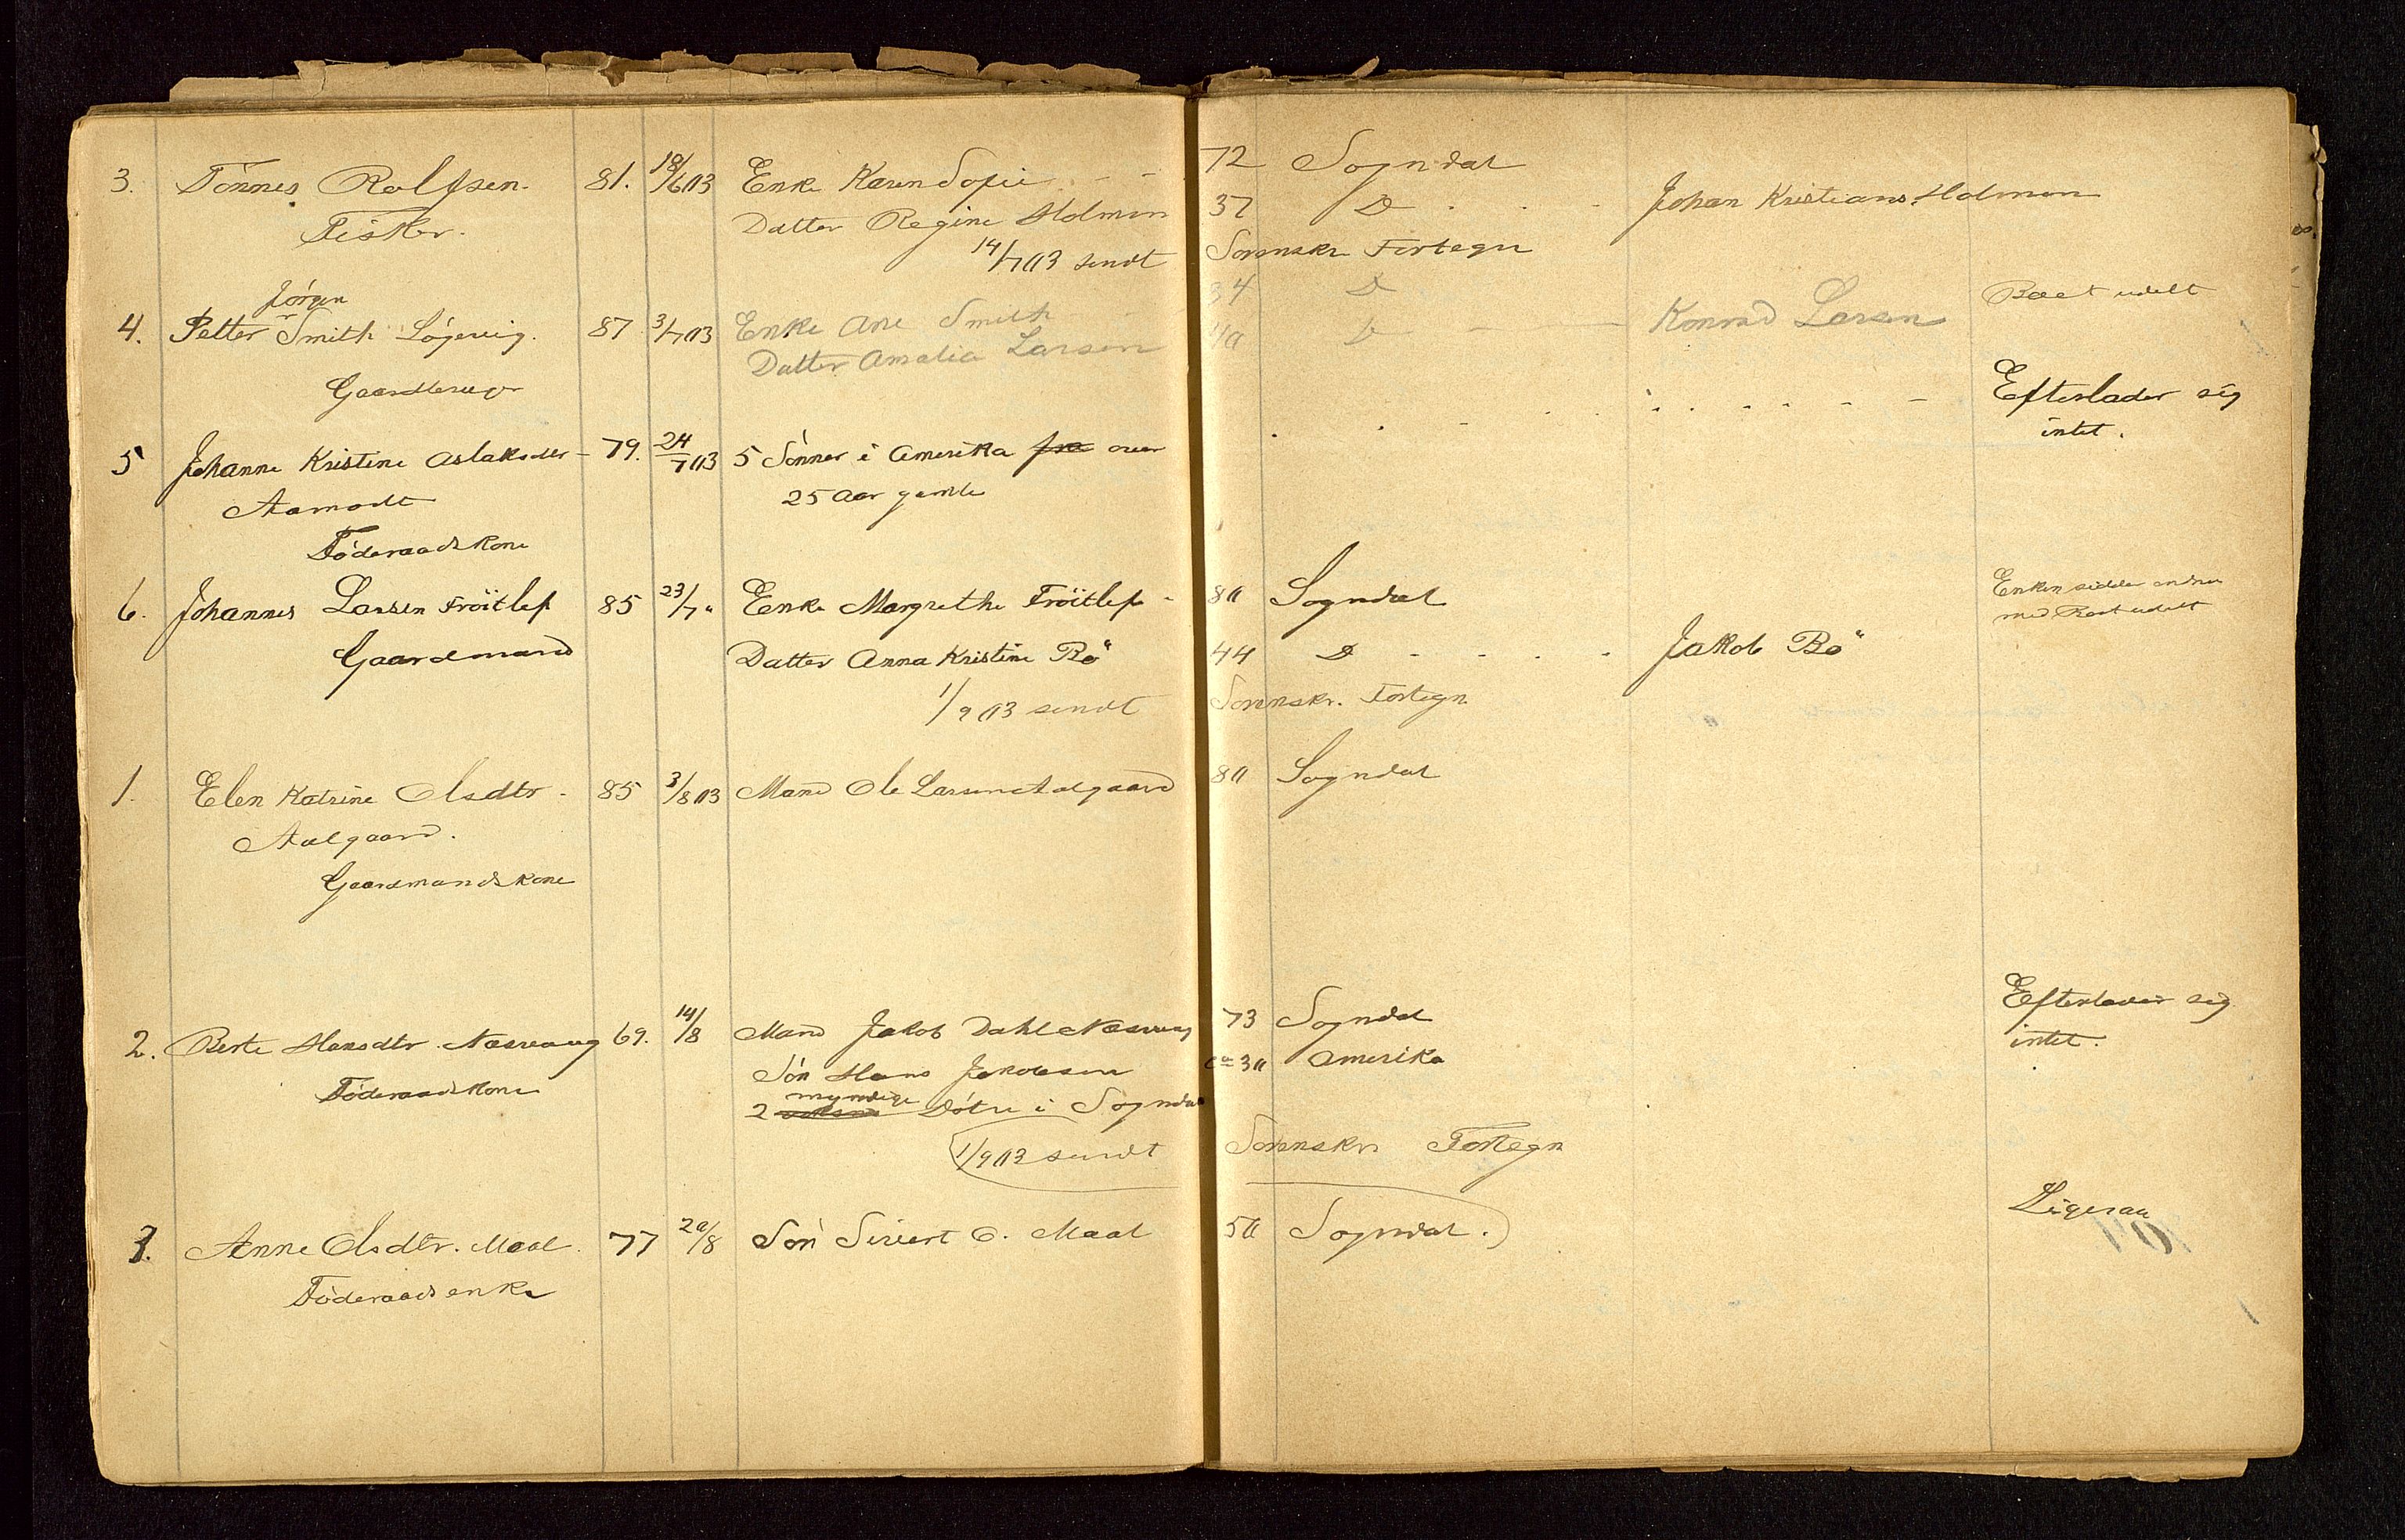 3. Tönnes Rolfsen. 81. 18/6 03 Enke Karen Sofie - - 72 Sogndal
Fisker. Datter Regine Holmen 37 D - - - Johan Kristians. Holmen
14/7 03 sendt Sorenskr Fortegn
Jörgen
4. Petter Smith Lögevig. 87 3/7 03 Enke Ane Smith 34 D Boet udelt
Datter Amalia Larsen 40 D - - Konrad Larsen
Gaardbruger
5 Johanne Kristine Aslaksdtr - 79. 24/7 03 5 Sönner i Amerika fra over - - - - Efterlader sig
Aamodt 25 Aar gamle intet.
Föderaadskone
6. Johannes Larsen Fröitlep 85 23/7 " Enke Margrethe Fröitlep - 80 Sogndal Enken sidder endnu
med Boet udelt
Gaardmand Datter Anna Kristine Bö 44 D - - - - Jakob Bö
1/9 03 sendt Sorenskr. Fortegn
1. Elen Katrine Olsdtr - 85 3/8 03 Mand Ole Larsen Aalgaard 80 Sogndal
Aalgaard.
Gaardmandskone
2. Berte Hansdtr. Næsvaag 69. 14/8 Mand Jakob Dahl Næsvaag 73 Sogndal Efterlader sig
Sön Hans Jakobsen ca 30 Amerika intet.
Föderaadskone myndige
2 voksne Dötre i Sogndal
1/9 03 sendt Sorenskr Fortegn
3. Anne Olsdtr. Maal. 77 20/8 Sön Sivert O. Maal 50 Sogndal.) Ligesaa
Föderaadsenke